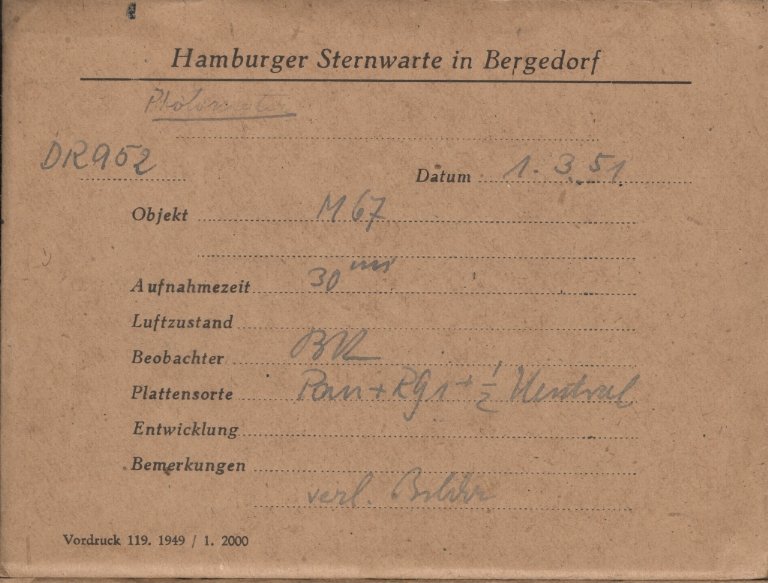 Hamburger Sternwarte in Bergedorf
DR952
Datum 1.3.51
Objekt M 67
Aufnahmezeit 30 m
Luftzustand
Beobachter
Plattensorte Pan + RG1 + 1/2 Neutral
Entwicklung
Bemerkungen
verl. Bilder
Vordruck 119. 1949 / 1. 2000